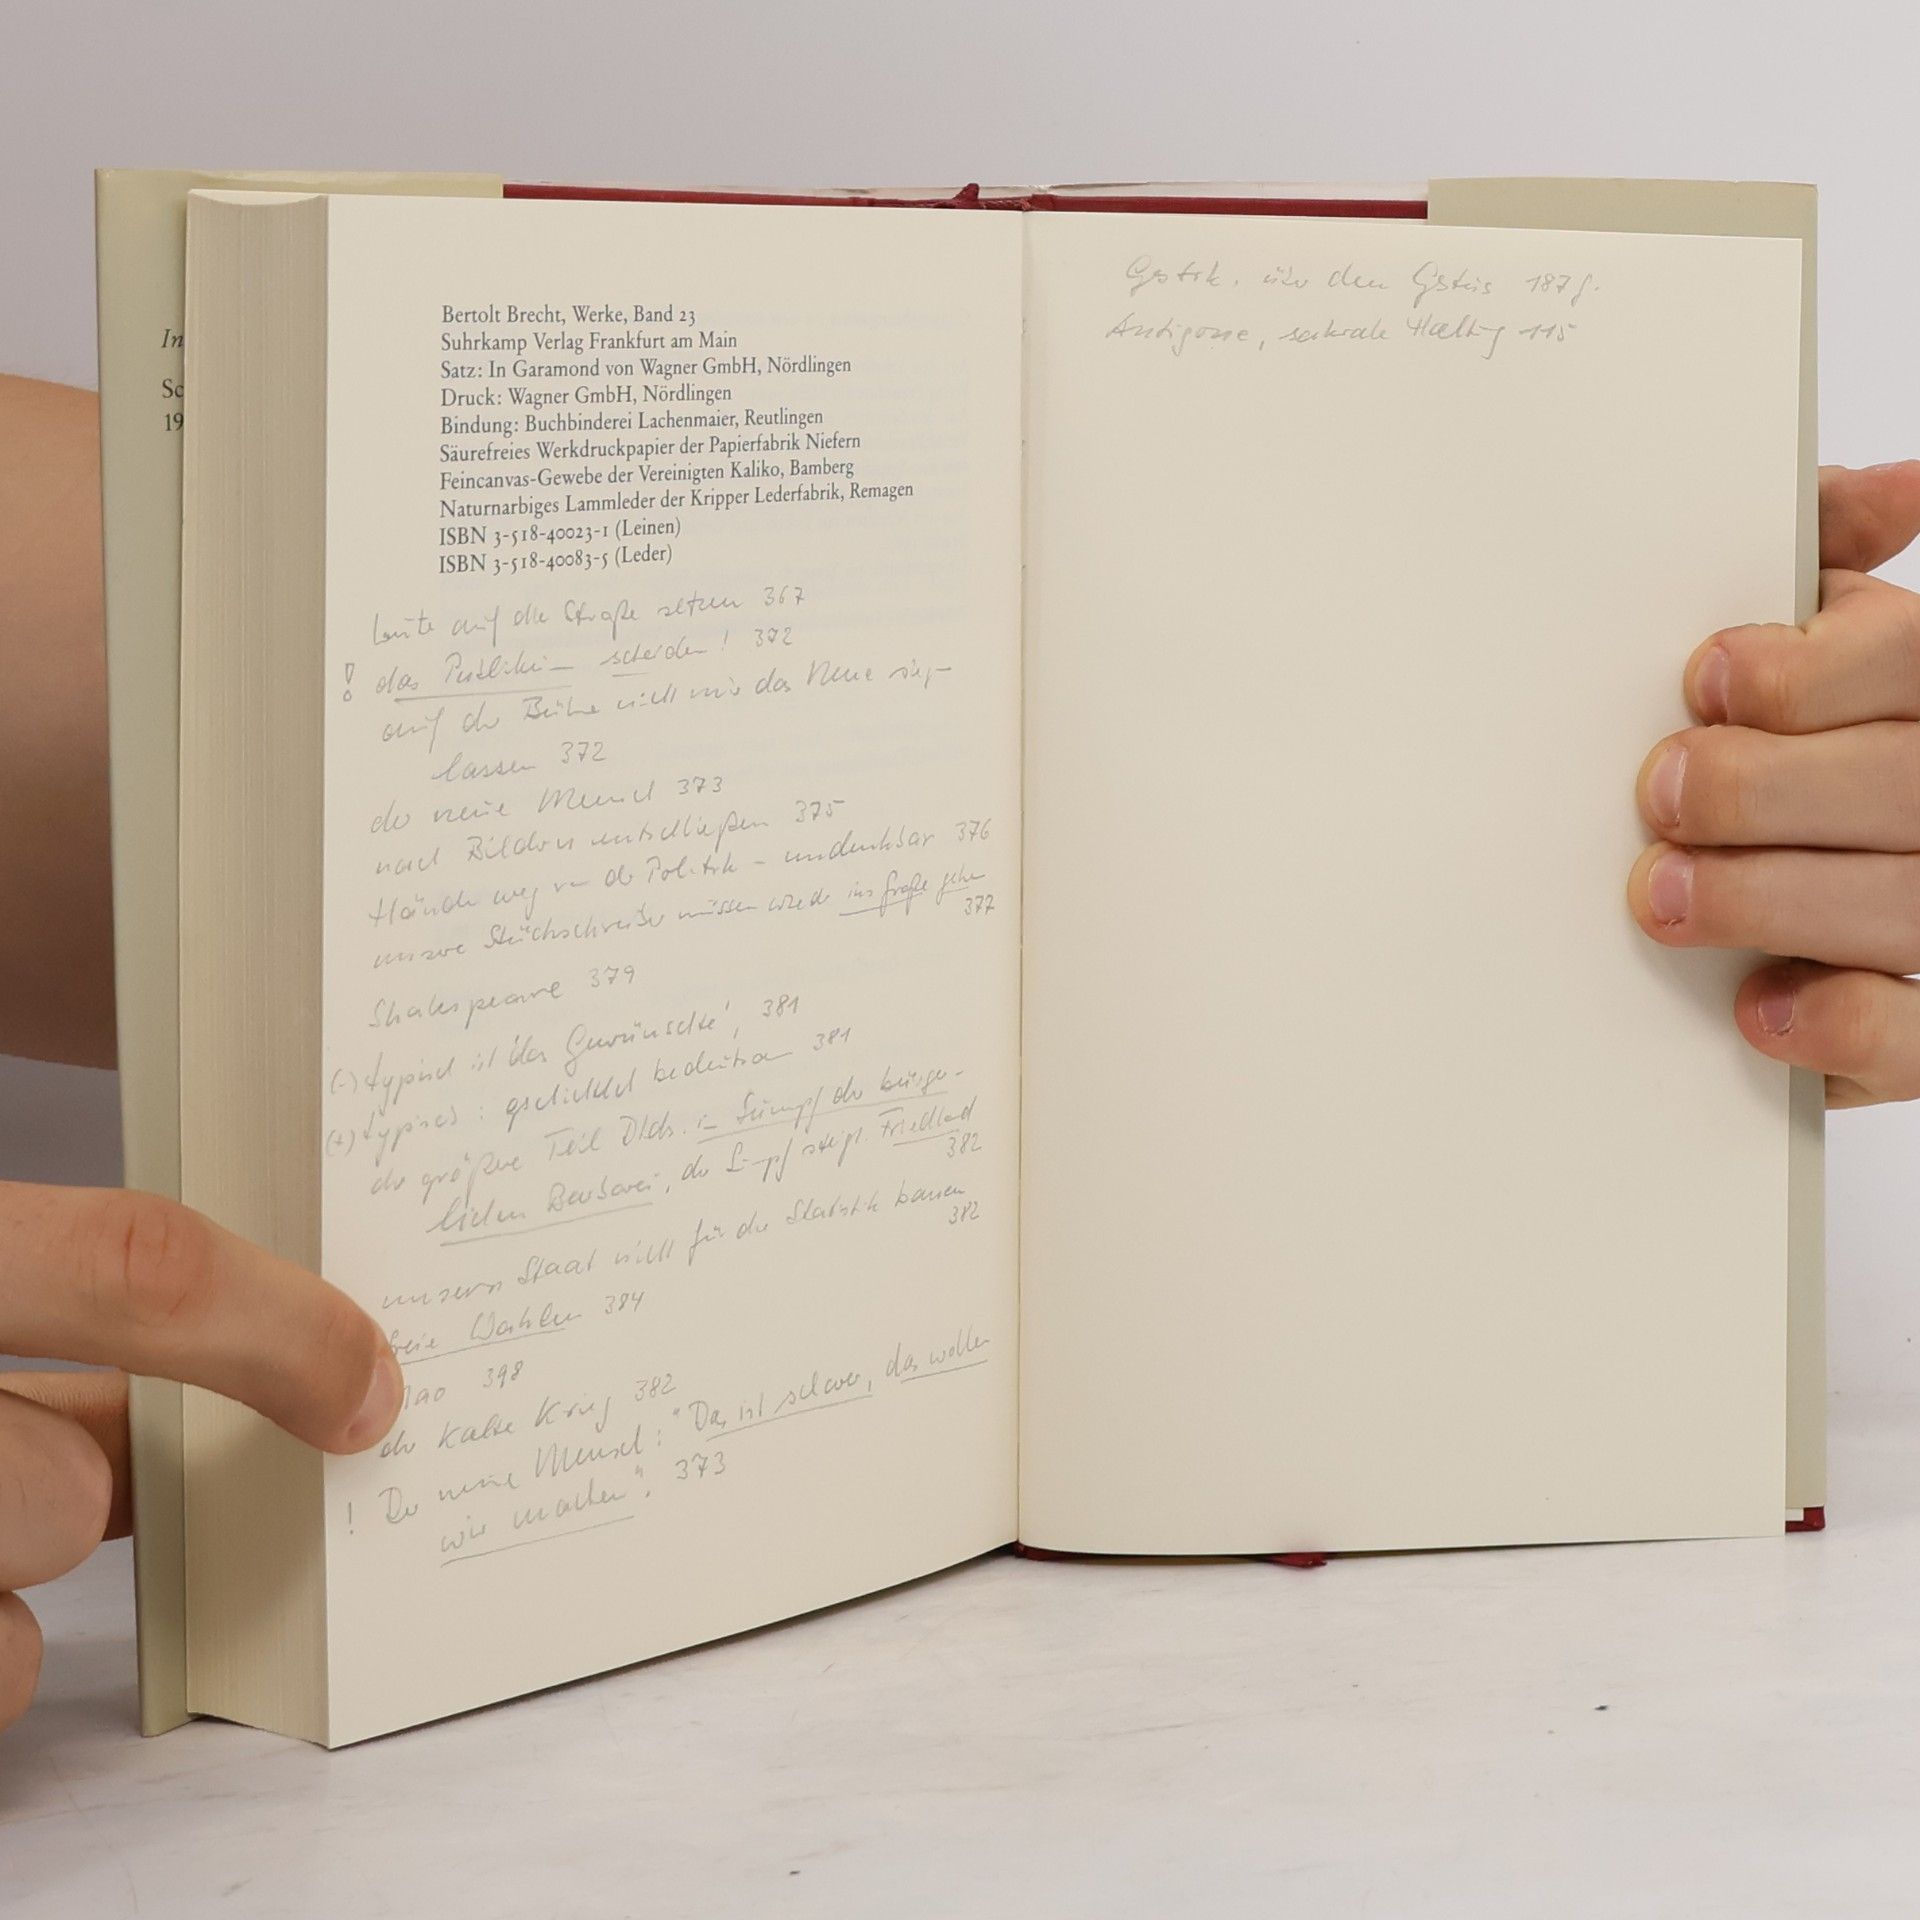 In
Sc
19
Bertolt Brecht, Werke, Band 23
Suhrkamp Verlag Frankfurt am Main
Satz: In Garamond von Wagner GmbH, Nördlingen
Druck: Wagner GmbH, Nördlingen
Bindung: Buchbinderei Lachenmaier, Reutlingen
Säurefreies Werkdruckpapier der Papierfabrik Niefern
Feincanvas-Gewebe der Vereinigten Kaliko, Bamberg
Naturnarbiges Lammleder der Kripper Lederfabrik, Remagen
ISBN 3-518-40023-1 (Leinen)
ISBN 3-518-40083-5 (Leder)
Leute auf die Straße setzen 367
! das Publikum ! 372
auf der Bühne nicht nur das Neue sieg-
lassen 372
der neue Mensch 373
nach Bildern entschließen 375
Hände weg von der Politik – undenkbar 376
unsere Stückschreiber müssen wieder ins Große gehen
377
Shakespeare 379
(-) typisch ist 'das Gewünschte', 381
(+) typisch: geschichtlich bedeutsam 381
der größere Teil Dtlds. im Sumpf der bürger-
lichen Barbarei, der Sumpf steigt. Friedland
382
unsern Staat nicht für die Statistik bauen
382
freie Wahlen 384
Mao 398
der Kalte Krieg 382
! Der neue Mensch: "Das ist schwer, das wollen
wir machen". 373
über den Gestus 187f.
Antigone, sakrale Haltung 115